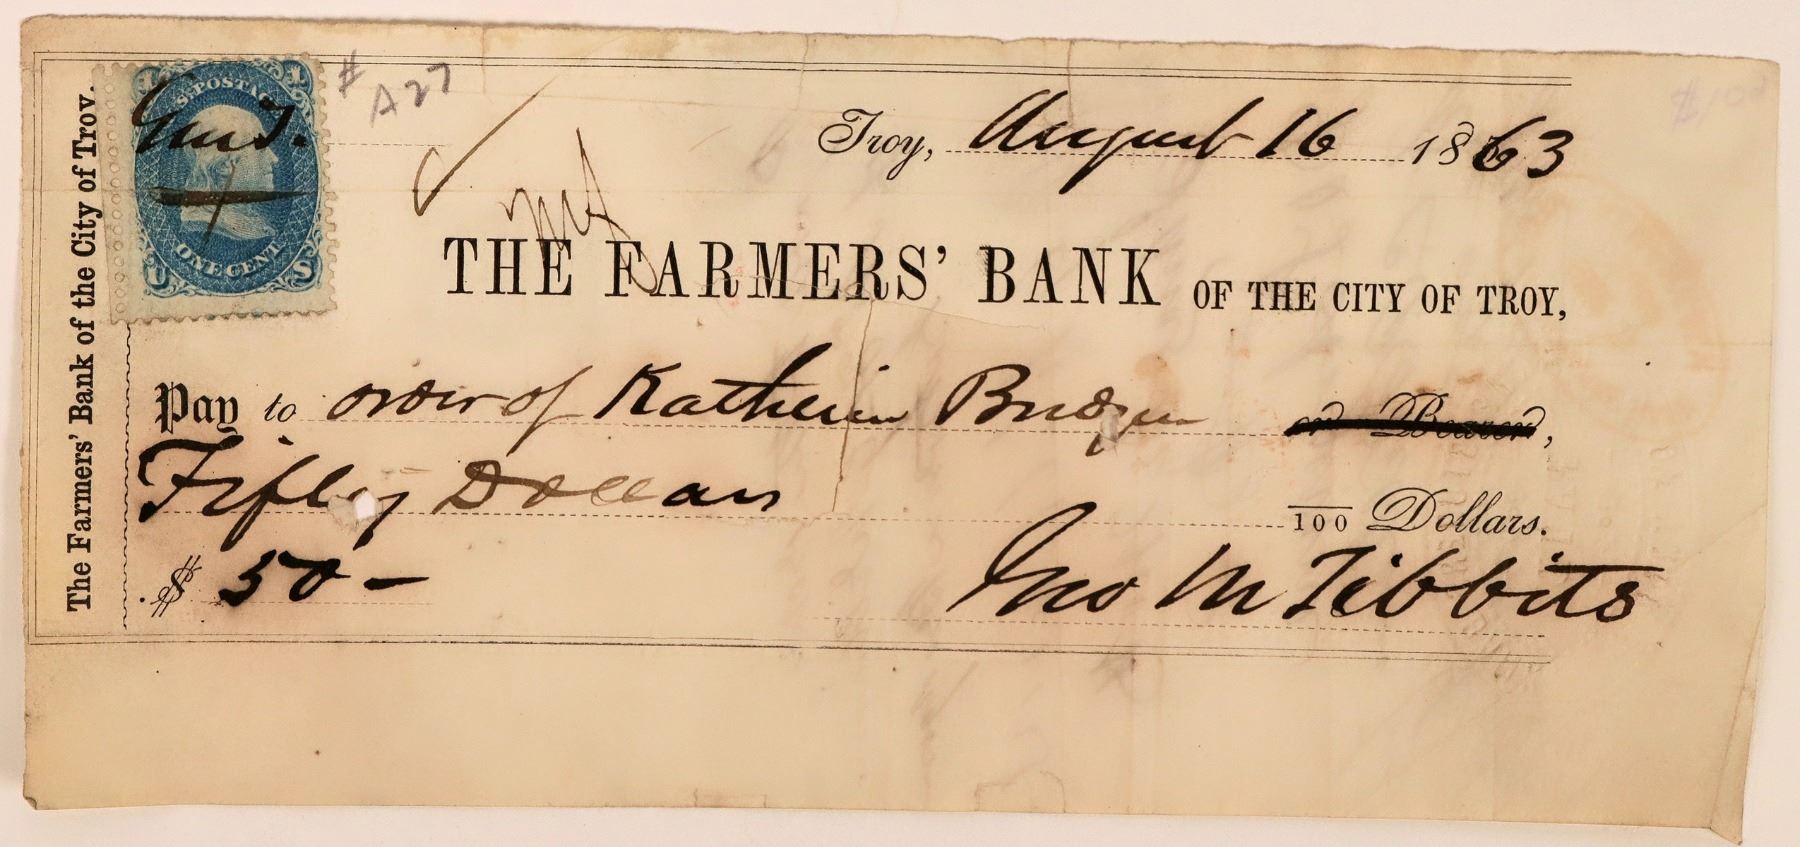 The Farmers' Bank of the City of Troy.
U.S. POSTAGE
ONE CENT
U S
# A27
$100
Troy, August 16 1863
THE FARMERS' BANK OF THE CITY OF TROY,
Pay to order of Katherin or Bearer,
Fifty Dollars 100 Dollars.
$ 50 –
Jno M Tibbits